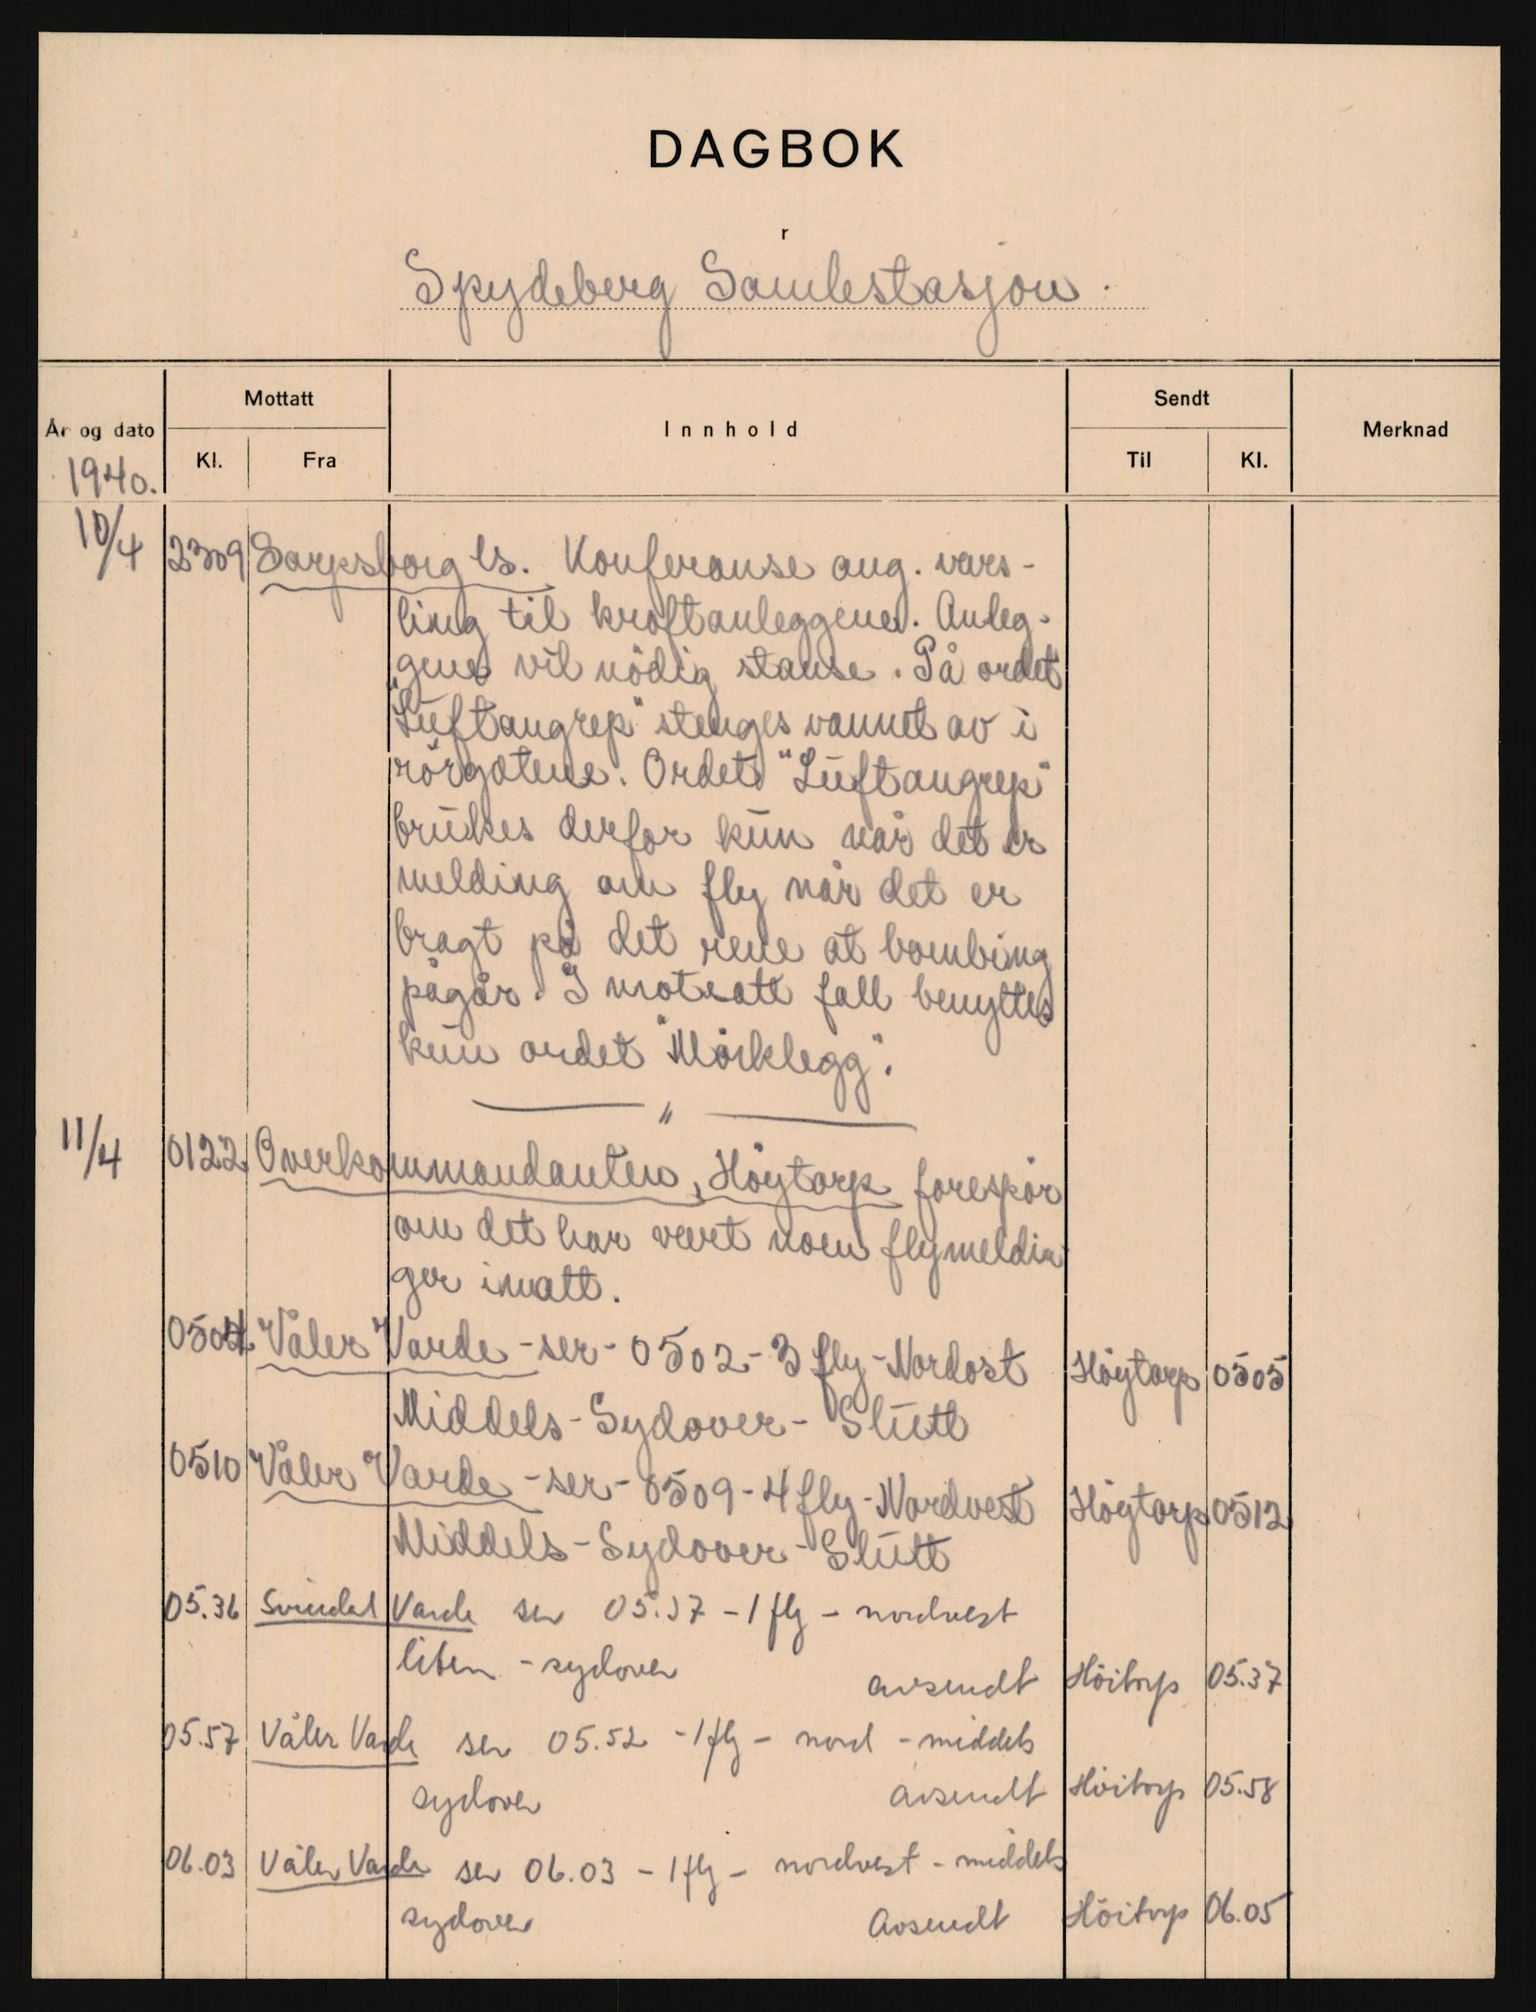 DAGBOK
r
Spydeberg Samlestasjon.
År og dato Mottatt Innhold Sendt Merknad
Kl. Fra Til Kl.
1940.
10/4 2309 Sarpsborg ls. Konferanse ang. vars-
ling til kraftanleggene. Anleg-
gene vil nödig stanse. På ordet
"Luftangrep" stenges vannet av i
rörgatene. Ordet "Luftangrep"
brukes derfor kun når det er
melding om fly når det er
bragt på det rene at bombing
pågår. I motsatt fall benyttes
kun ordet "Mörklegg".
— " —
11/4 0122 Overkommandanten, Höytorp forespör
om det har vært noen flymeldin
ger inatt.
0504 Våler Varde - ser - 0502 - 3 fly - Nordost Höytorp 0505
Middels - Sydover - Slutt
0510 Våler Varde - ser - 0509 - 4 fly - Nordvest Höytorp 0512
Middels - Sydover - Slutt
05.36 Svindal Varde ser 05.37 - 1 fly - nordvest
liten - sydover avsendt Höitorp 05.37
05.57 Våler Varde ser 05.52 - 1 fly - nord - middels
sydover avsendt Höitorp 05.58
06.03 Våler Varde ser 06.03 - 1 fly - nordvest - middels
sydover Avsendt Höitorp 06.05